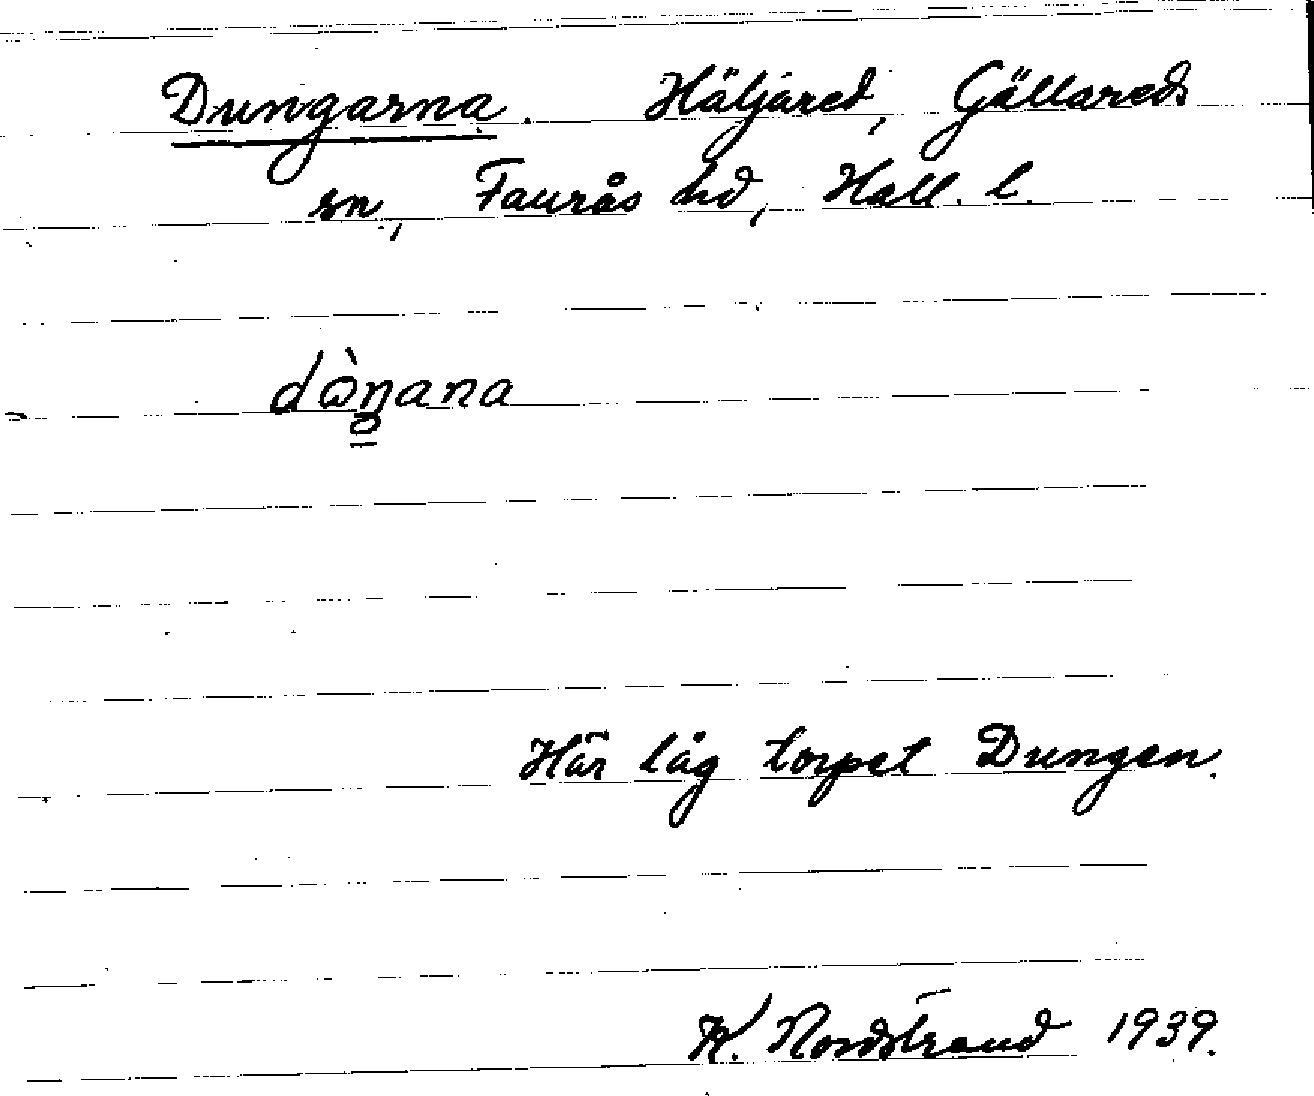 Dungarna. Häljared, Gällareds
sn, Faurås hd, Hall. l.
dòŋana
Här låg torpet Dungen.
K. Nordstrand 1939.